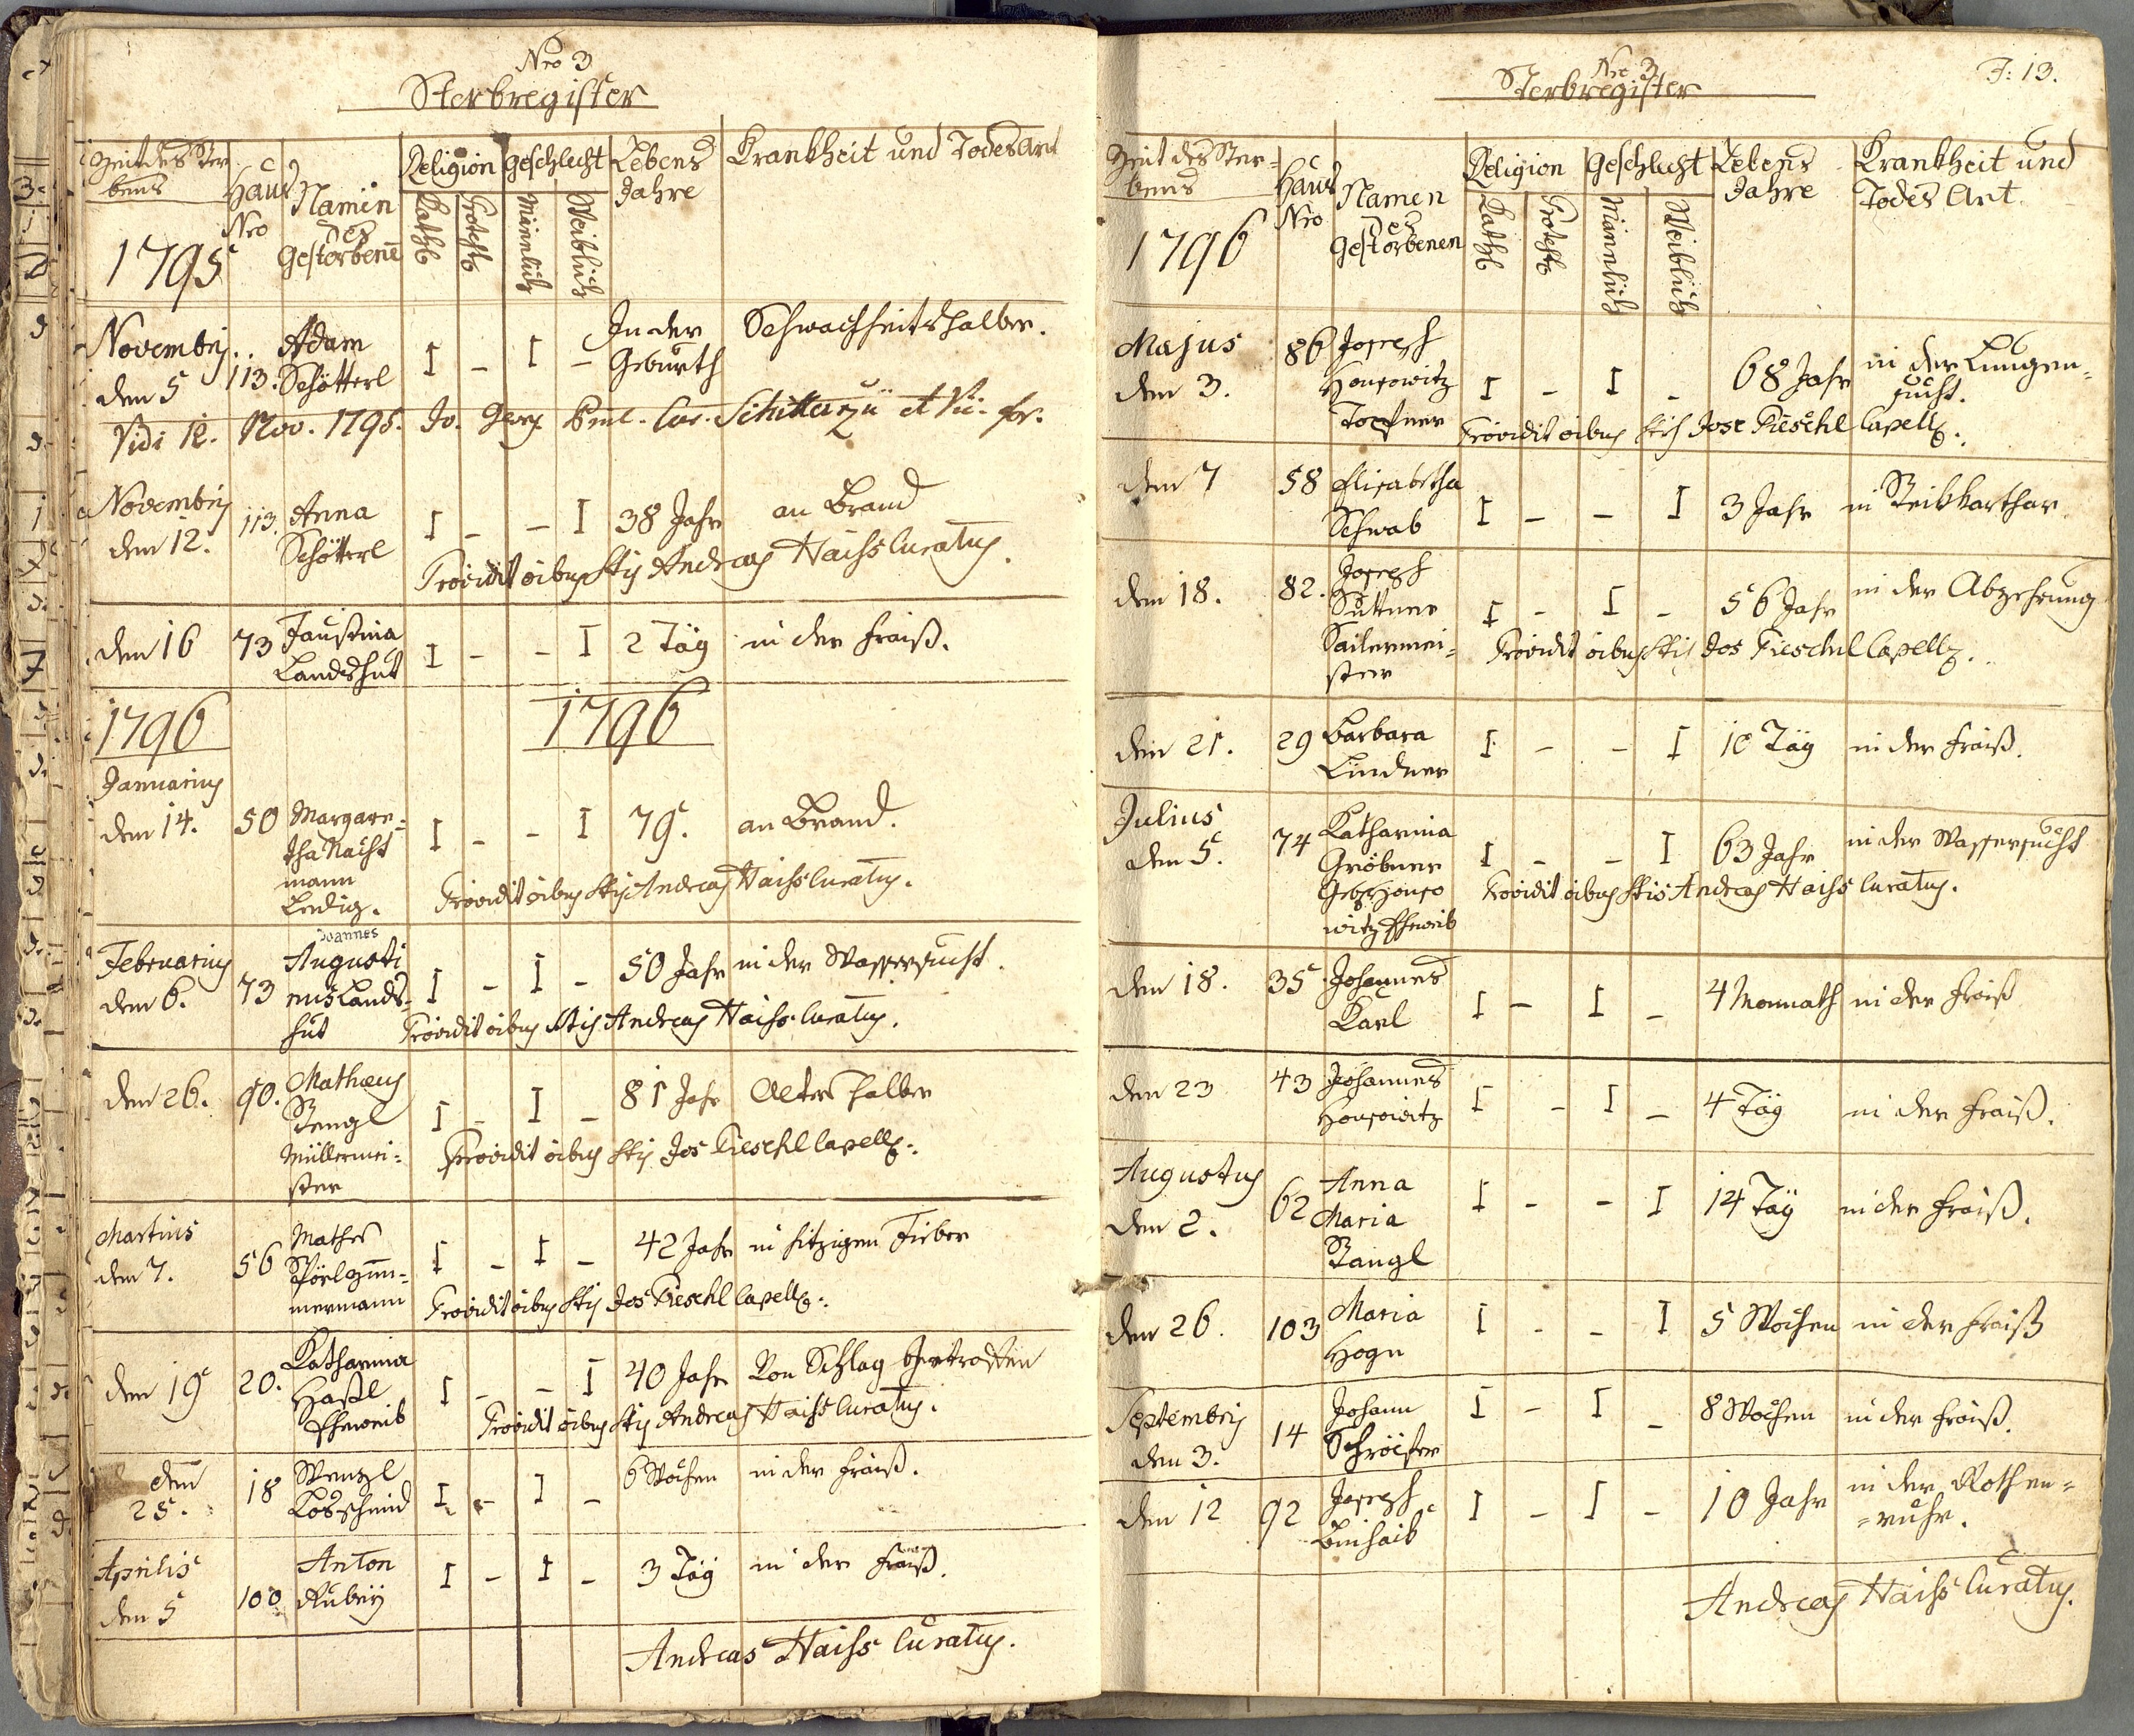 Nro 3
Sterbregister
Zeit des Ster
bens
1795
Haus
Nro
Namen
des
Gestorbenē
Religion
Kathl
Protest
Geschlecht
Männlich
Weiblich
Lebens
Jahre
Krankheit und Todes Art
Novembris
den 5
113.
Adam
Schötterl
I - I -
In der
Geburth
Schwachheitshalber.
Vidi 12. Nov. 1795. Jo. Georg
Novembris
den 12.
113.
Anna
Schötterl
I - - I
38 Jahr
an Brand
Providit oibus Stis Andreas Haiss Curatus.
den 16
73
Faustina
Landshut
I - - I
2 Täg
in der Fraiß.
1796
1796
Januarius
den 14.
50
Margare=
tha Nacht
mann
Ledig.
I - - I
79.
an Brand.
Providit oibus Stis Andreas Haiss Curatus.
Februarius
den 6.
73
Joannes
Augusti
nus Lands-
hut
I - I -
50 Jahr
in der Wassersucht.
Providit oibus Stis Andreas Haiss Curatus.
den 26.
90.
Mathæus
Stengl
Müllermei=
ster
I - I -
81 Jahr
Alters halber
Providit oibus Stis Jos Pieschl Capell:
Martius
den 7.
56
Mathes
Pörlzim̄=
mermann
I - I -
42 Jahr
in hitzigen Fieber
Providit oibus Stis Jos Pieschl Capell:
den 19
20.
Katharina
Haßl
Eheweib
I - - I
40 Jahr
Von Schlag
Providit oibus Stis Andreas Haiss Curatus.
den
25.
18
Wenzl
Lobschmid
I - I -
6 Wochen
in der Fraiß.
Aprilis
den 5
100
Anton
Rubey
I - I -
3 Täg
in der Fraiß.
Andreas Haiss Curatus.
F: 13.
Nro 3
Sterbregister
Zeit des Ster=
bens
1796
Haus
Nro
Namen
des
Gestorbenen
Religion
Kathl
Protest
Geschlecht
Männlich
Weiblich
Lebens
Jahre
Krankheit und
Todes Art.
Majus
den 3.
86
Joseph
Honsowitz
Topfner
I - I -
68 Jahr
in der Lungen=
sucht.
Providit oibus Stis Jose Pieschl Capell:
den 7
58
Elisabetha
Schwab
I - - I
3 Jahr
in Steikkarthar
den 18.
82.
Joseph
Suttner
Sailermei=
ster
I - I -
56 Jahr
in der Abzehrung
Providit oibus Stis Jos Pieschl Capell.
den 21.
29
Barbara
Lindner
I - - I
10 Täg
in der Fraiß.
Julius
den 5.
74
Katharina
Gröbner
Geb Honso
witz Eheweib
I - - I
63 Jahr
in der Wassersucht
Providit oibus Stis Andreas Haiss Curatus.
den 18.
35
Johannes
Karl
I - I -
4 Monnath
in der Fraiß
den 23
43
Johannes
Honsowitz
I - I -
4 Täg
in der Fraiß.
Augustus
den 2.
62
Anna
Maria
Stangl
I - - I
14 Täg
in der Fraiß.
den 26.
103
Maria
Hogn
I - - I
5 Wochen
in der Fraiß
Septembris
den 3.
14
Johann
Schröister
I - I -
8 Wochen
in der Fraiß.
den 12
92
Joseph
Beihaib
I - I -
10 Jahr
in der Rothen=
=ruhr.
Andreas Haiss Curatus.